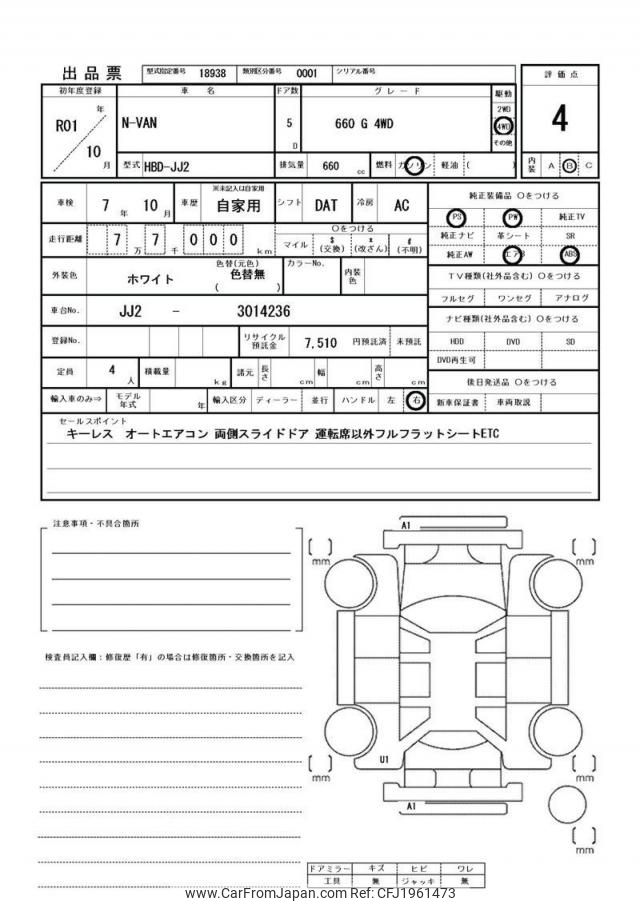 出品票 型式指定番号 18938 類別区分番号 0001 シリアル番号
評価点
4
内装 A B C
初年度登録 車名 ドア数 グレード 駆動
R01 年 10 月
N-VAN 5 D 660 G 4WD
2WD
4WD
その他
型式 HBD-JJ2 排気量 660 cc 燃料 ガソリン 軽油 ( )
車検 7 年 10 月 車歴 ※未記入は自家用 自家用 シフト DAT 冷房 AC
走行距離 7 万 7 千 0 0 0 km
○をつける
マイル $ (交換) x (改ざん) # (不明)
外装色 ホワイト 色替(元色) 色替無 ( ) カラーNo. 内装色
車台No. JJ2 - 3014236
登録No. リサイクル預託金 7,510 円預託済 未預託
定員 4 人 積載量 kg 諸元 長さ cm 幅 cm 高さ cm
輸入車のみ⇒ モデル年式 年 輸入区分 ディーラー 並行 ハンドル 左 右
純正装備品 ○をつける
PS PW 純正TV
純正ナビ 革シート SR
純正AW エアB ABS
TV種類(社外品含む) ○をつける
フルセグ ワンセグ アナログ
ナビ種類(社外品含む) ○をつける
HDD DVD SD
DVD再生可
後日発送品 ○をつける
新車保証書 車両取説
セールスポイント
キーレス オートエアコン 両側スライドドア 運転席以外フルフラットシートETC
注意事項・不具合箇所
検査員記入欄:修復歴「有」の場合は修復箇所・交換箇所を記入
A1
[ ] mm
[ ] mm
U1
[ ] mm
[ ] mm
A1
[ ] mm
ドアミラー キズ ヒビ ワレ
工具 無 ジャッキ 無
www.CarFromJapan.com - CFJ1961473